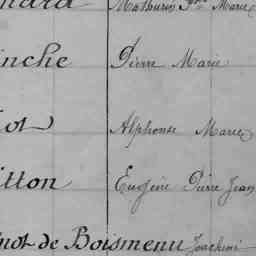 Mathurin Marie
inche Pierre Marie
ot Alphonse Marie
tton Eugène Pierre Jean
not de Boismenu Joachim